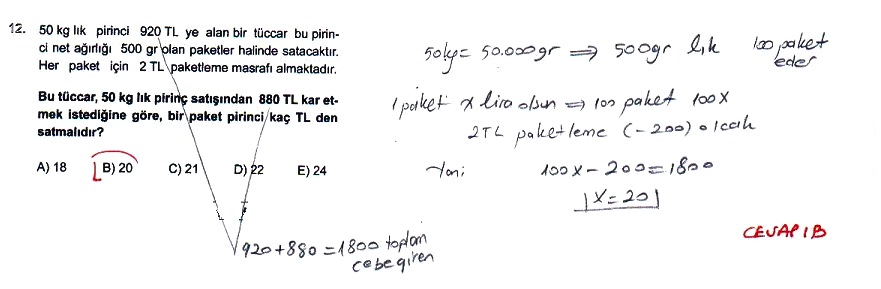 12. 50 kg lık pirinci 920 TL ye alan bir tüccar bu pirin-
ci net ağırlığı 500 gr olan paketler halinde satacaktır.
Her paket için 2 TL paketleme masrafı almaktadır.
Bu tüccar, 50 kg lık pirinç satışından 880 TL kar et-
mek istediğine göre, bir paket pirinci kaç TL den
satmalıdır?
A) 18 B) 20 C) 21 D) 22 E) 24
920 + 880 = 1800 toplam
cebe giren
50kg = 50.000gr ⇒ 500gr lık 100 paket
eder
1 paket x lira olsun ⇒ 100 paket 100x
2TL paketleme (-200) olcak
Yani 100x - 200 = 1800
x = 20
CEVAP B